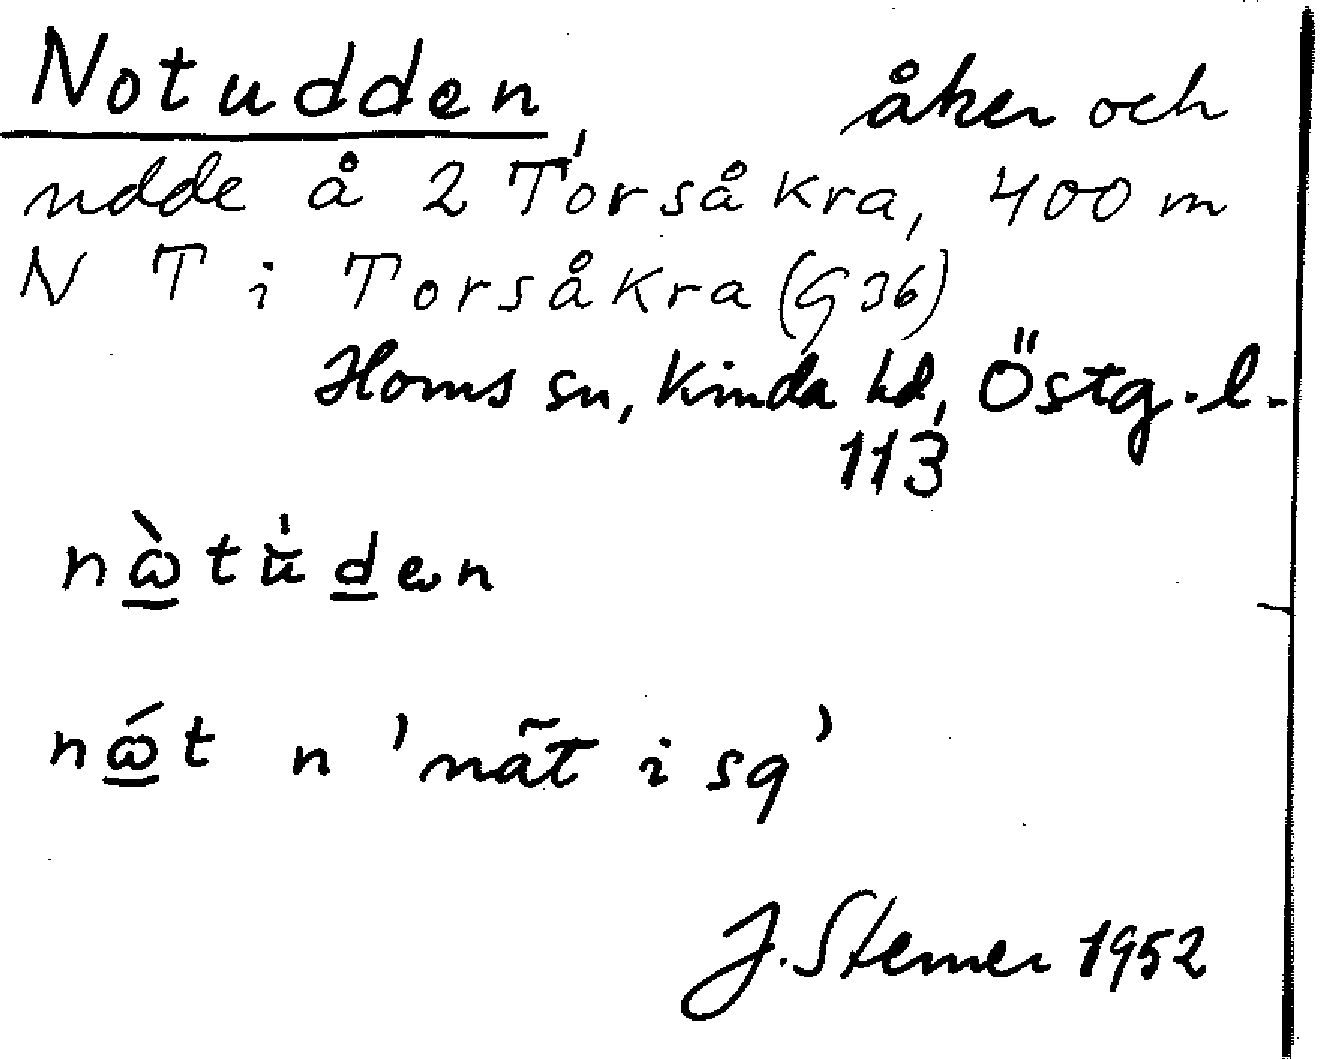 Notudden, åker och
udde å 2 Torsåkra, 400 m
N T i Torsåkra (G 36)
Horns sn, Kinda hd, Östg. l.
113
nὼtu̇̀den
nώt n 'nät i sg'
J. Sterner 1952